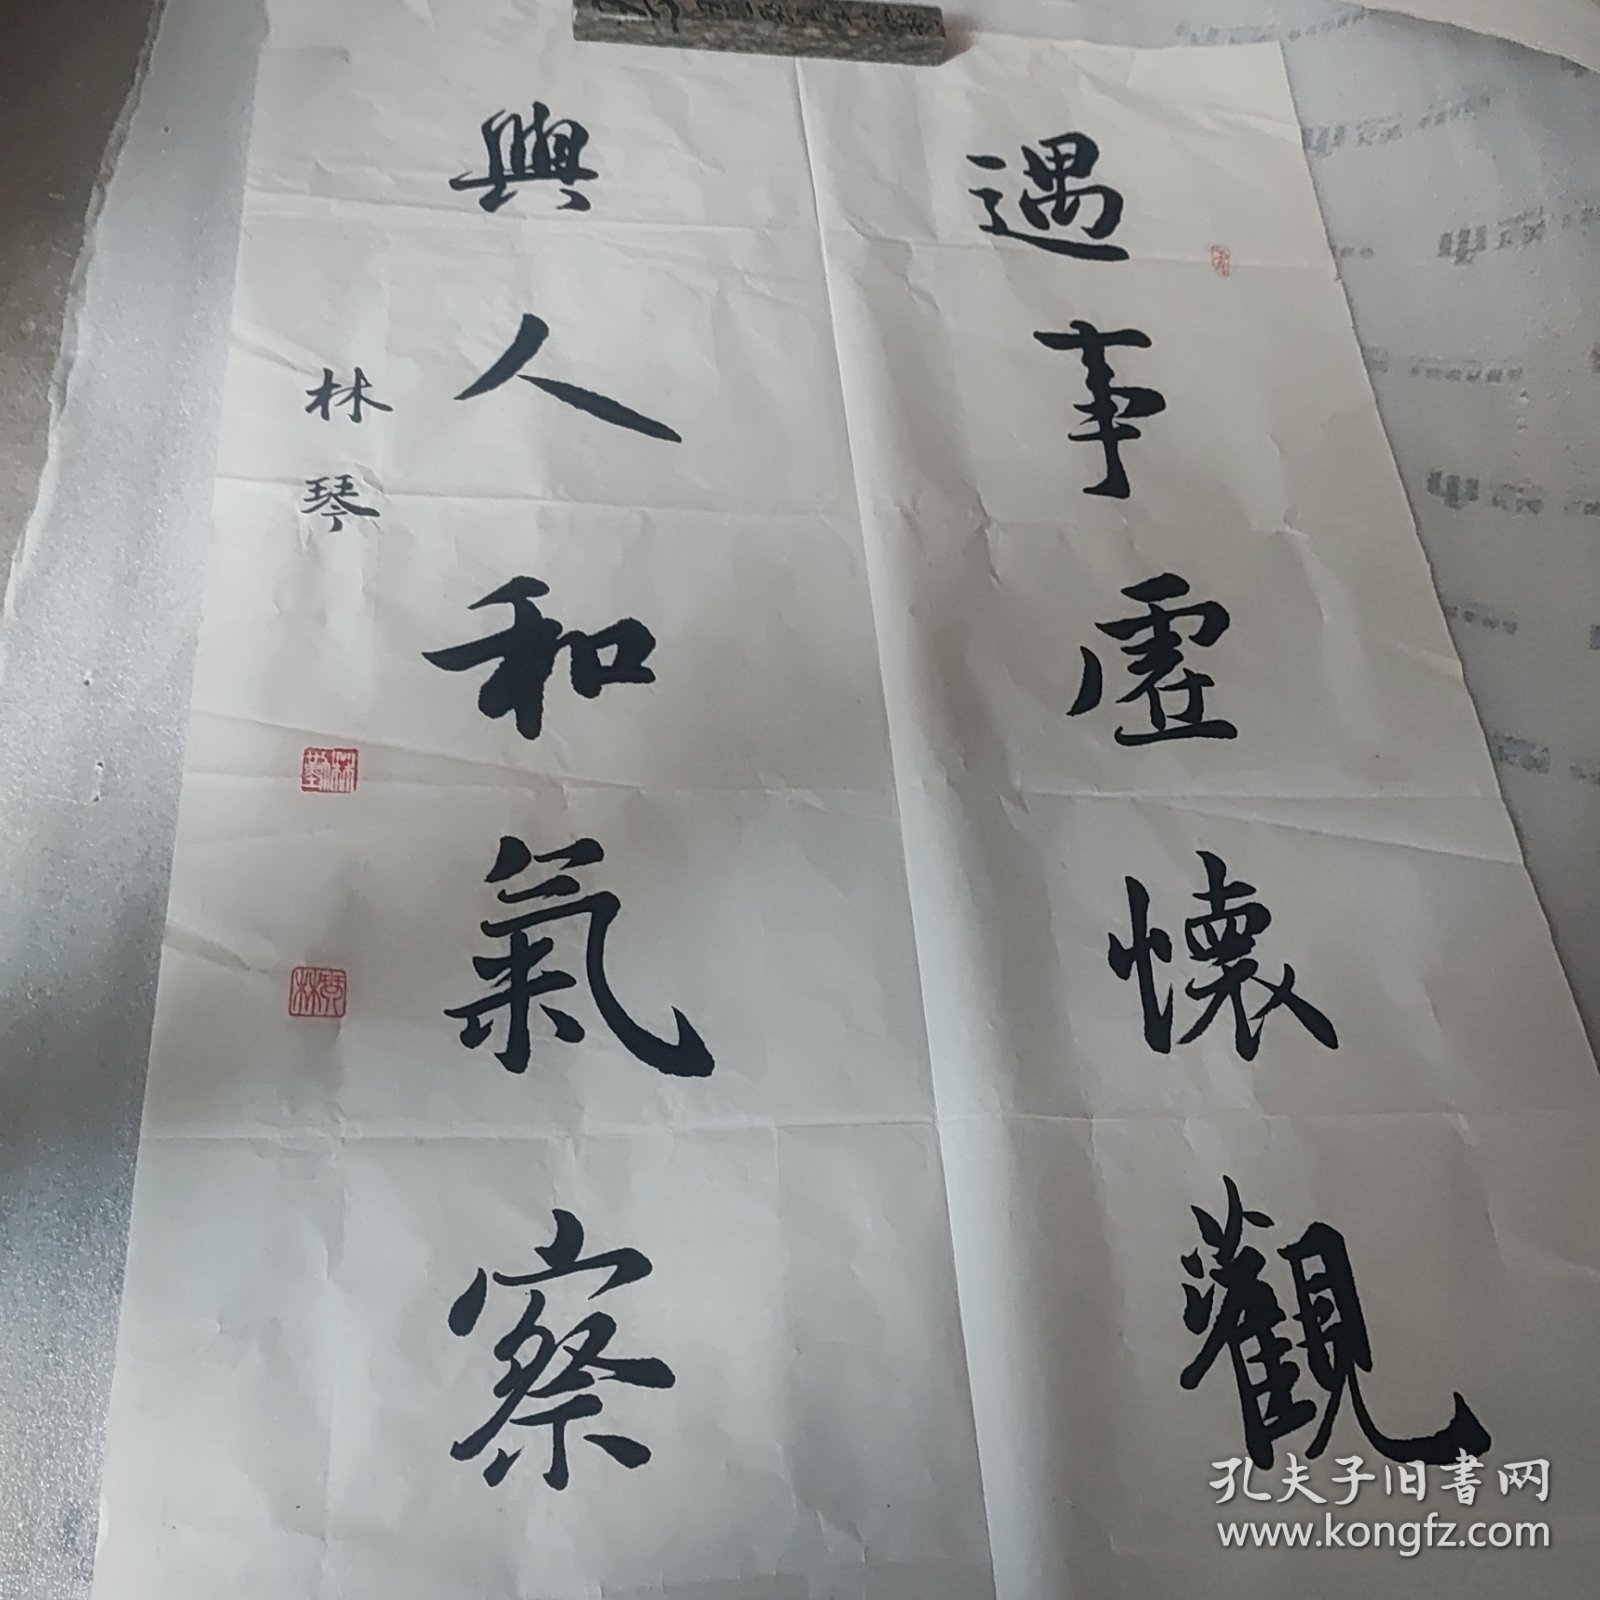 遇事虛懷觀
與人和氣察
林琴
孔夫子旧书网
www.kongfz.com